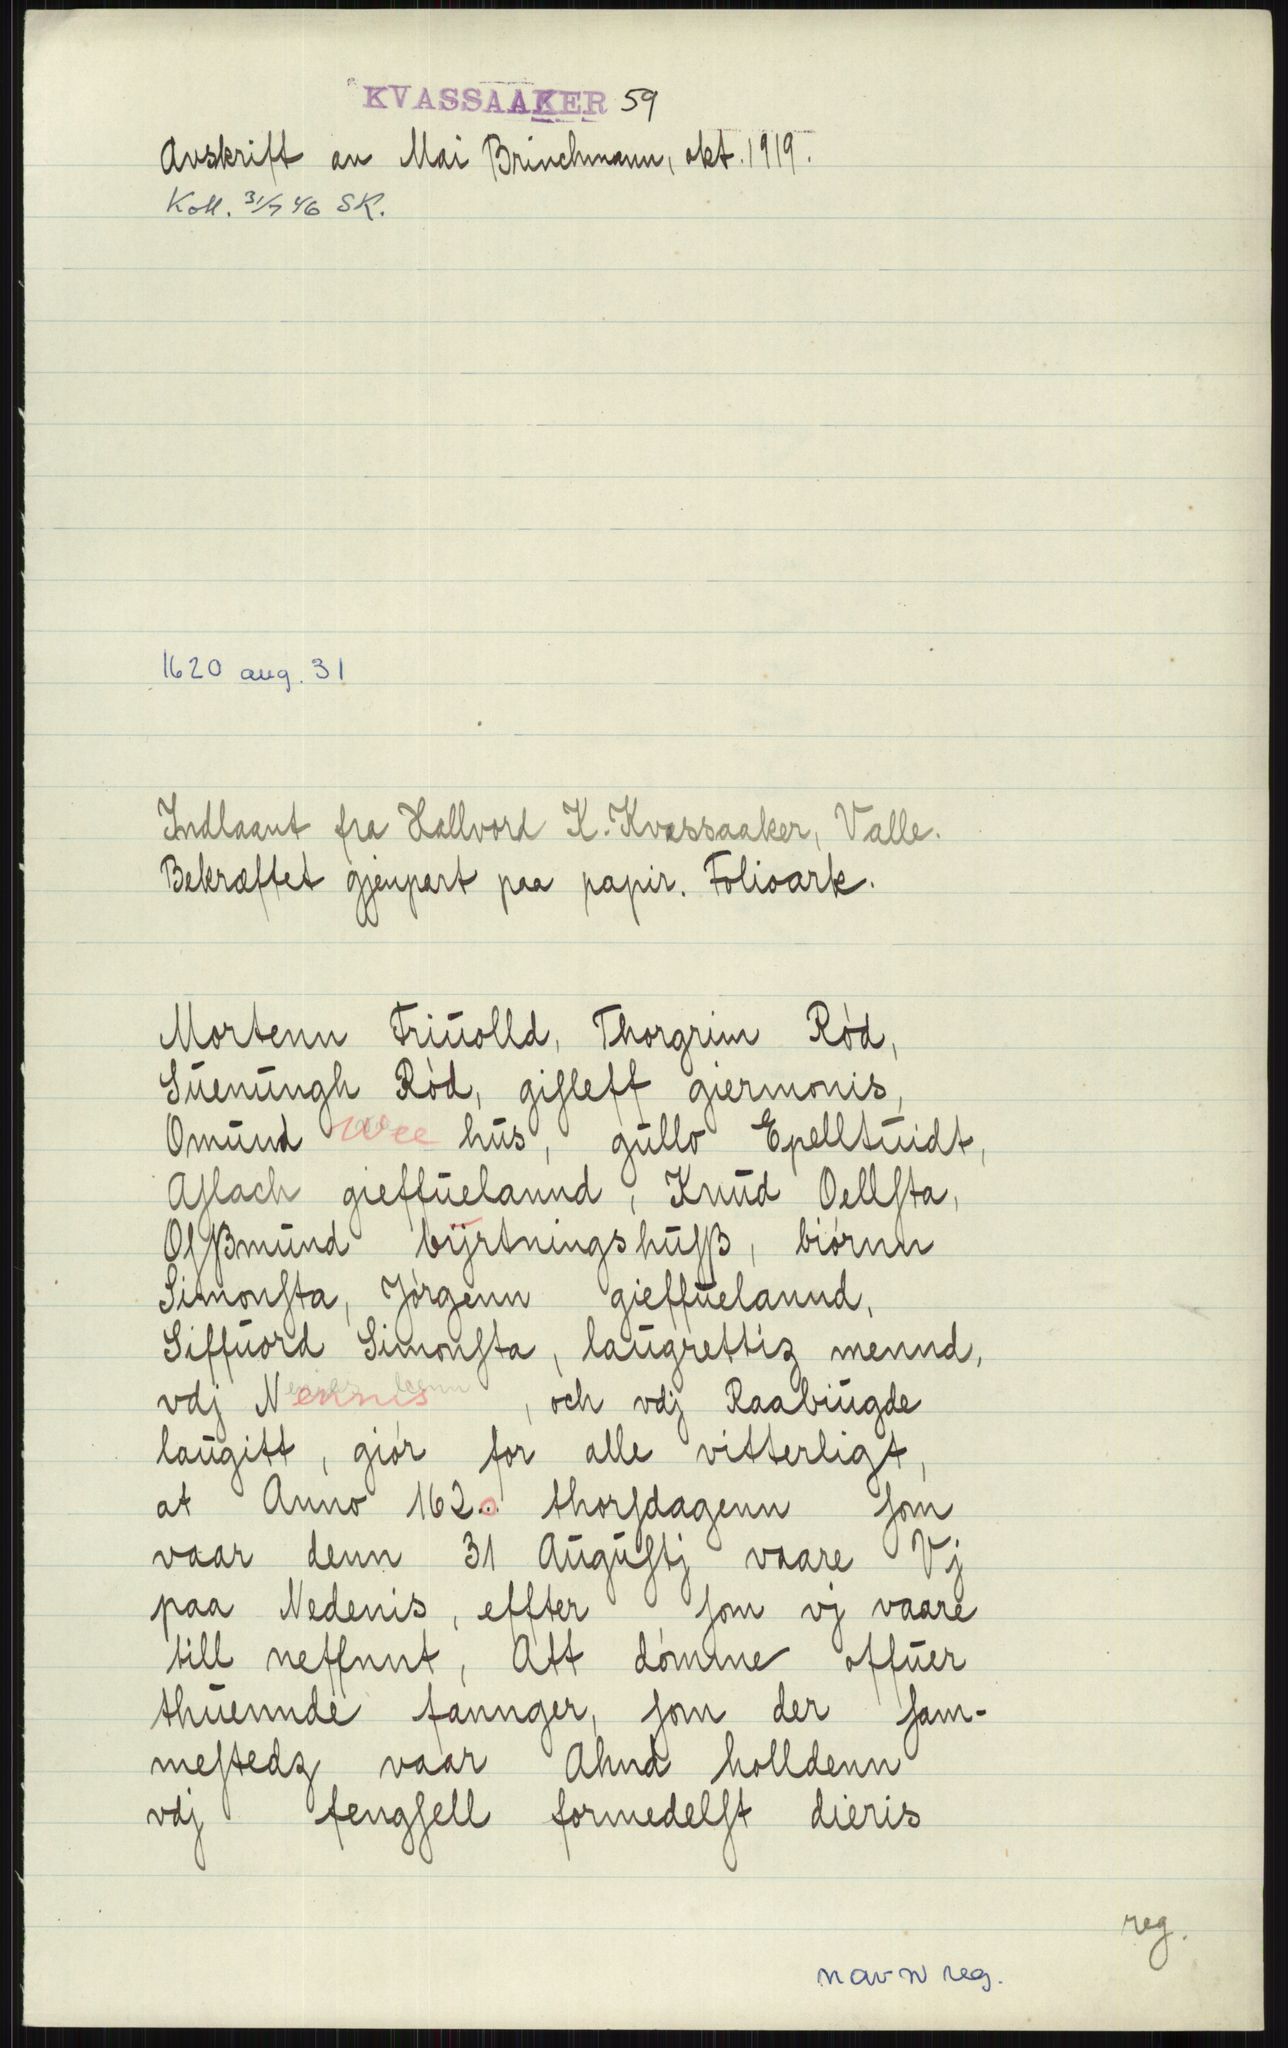 KVASSAAKER 59
Avskrift av Mai Brinchmann, okt. 1919.
Koll. 31/7 46 SK.
1620 aug. 31
Indlaant fra Hallvord K. Kvassaaker, Valle.
Bekræftet gjenpart paa papir. Folioark.
Mortenn Friŭolld, Thorgrim Rød,
Sŭenŭngh Rød, gisleff giermonis,
Omŭnd Wee hŭs, gŭllo Epelltŭidt,
Aslach gieffŭelannd, Knŭd Oellsta,
Olsßmŭnd bÿrtningshŭsß, biørnn
Simonsta, Jørgenn gieffŭelannd,
Siffŭord Simonsta, laŭgrettiz mennd,
vdj Nednis, och vdj Raabiŭgde
laŭgitt, giør for alle vitterligt,
at Anno 1620 thorsdagenn som
vaar denn 31 Aŭgŭstj vaare Vj
paa Nedenis, effter som vj vaare
till neffnnt, Att dømme offŭer
thŭennde fannger, som der sam-
mestedz vaar Ahnd holldenn
vdj fengsell formedelst dieris
reg.
navn reg.